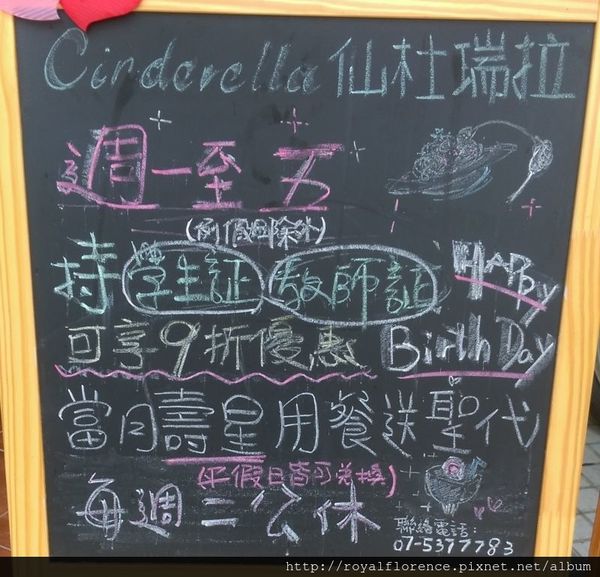 Cinderella 仙杜瑞拉
週一至五
(例假日除外)
持學生証、教師証
可享9折優惠
HAPPY
BirthDay
當月壽星用餐送聖代
(平假日皆可兌換)
每週二公休
聯絡電話
07-5377783
http://royalflorence.pixnet.net/album